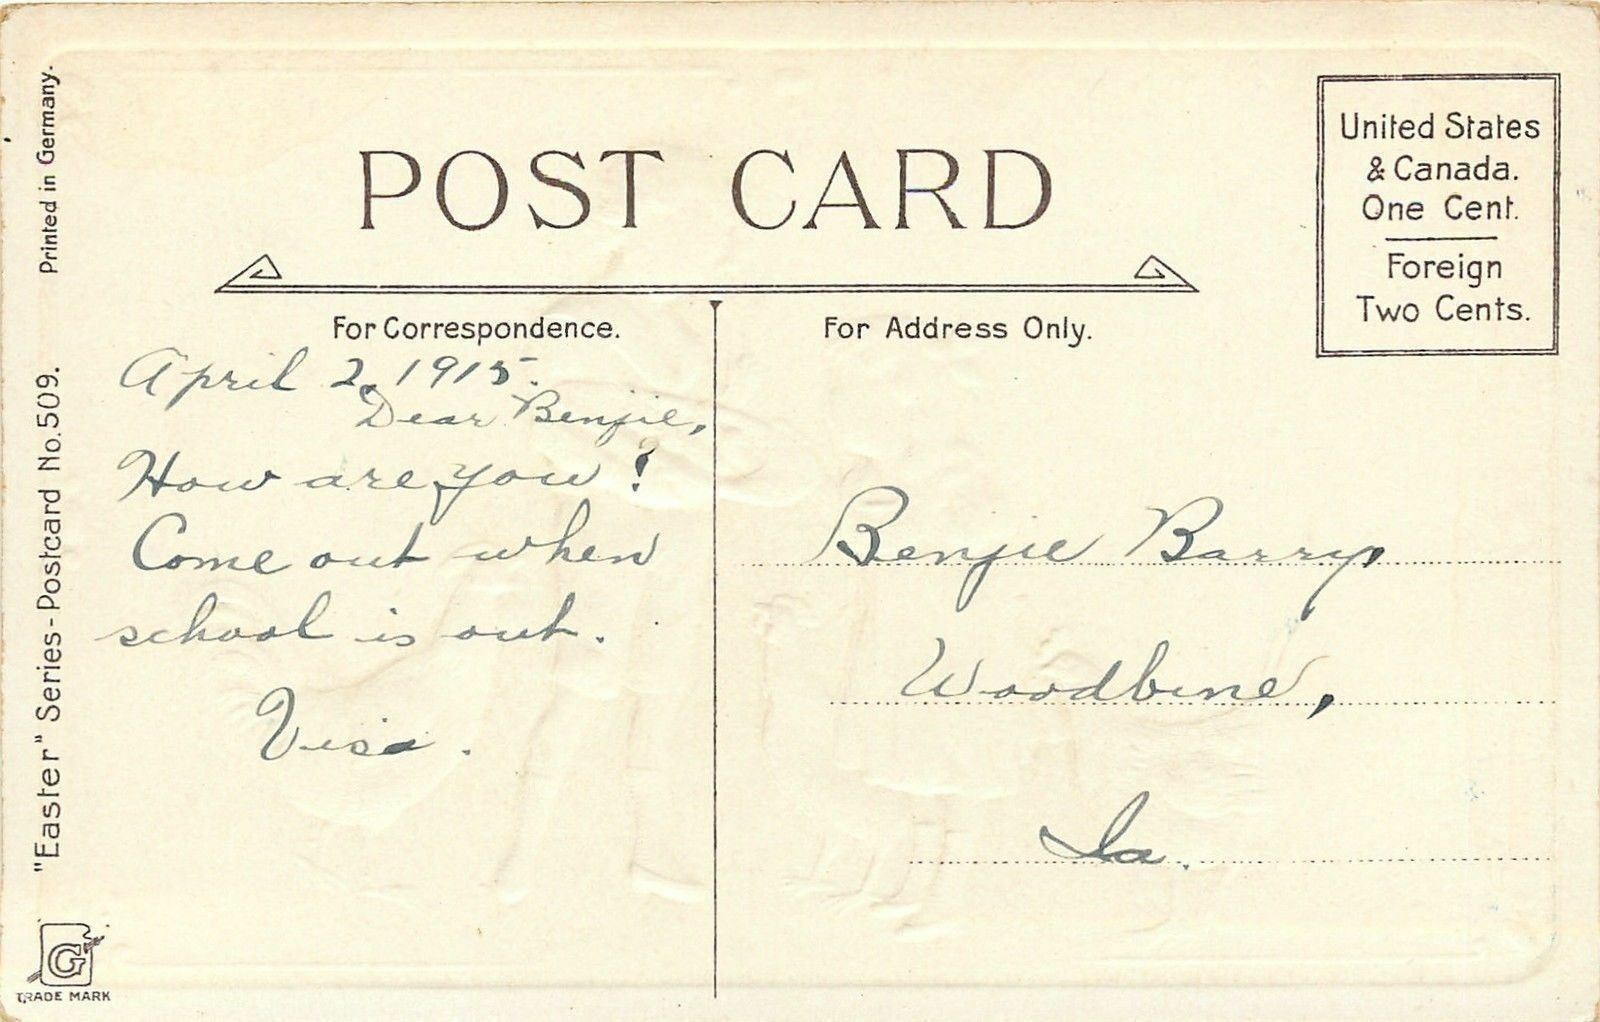 POST CARD
United States
& Canada.
One Cent.
Foreign
Two Cents.
For Correspondence.
For Address Only.
April 2, 1915.
Dear Benjie,
How are you?
Come out when
school is out.
Visa.
Benjie Barry,
Woodbine,
Ia.
Printed in Germany.
"Easter" Series-Postcard No. 509.
G
TRADE MARK